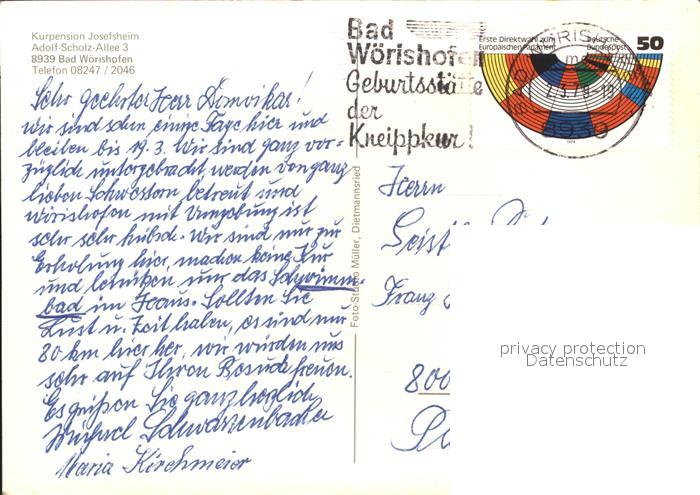 Kurpension Josefsheim
Adolf-Scholz-Allee 3
8939 Bad Wörishofen
Telefon 08247 / 2046
Sehr geehrter Herr
wir sind schon einige Tage hier und
bleiben bis 19.3. Wir sind ganz vor-
züglich untergebracht, werden von ganz
lieben Schwestern betreut und
Wörishofen mit Umgebung ist
sehr sehr hübsch. Wir sind nur zur
Erholung hier, machen keine Kur
und benützen nur das Schwimm-
bad im Haus. Sollten Sie
Lust u. Zeit haben, es sind nur
80 km hier her, wir würden uns
sehr auf Ihren Besuch freuen.
Es grüßen Sie ganz herzlich
Schwarzenbacher
Maria Kirchmeier
Foto-Studio Müller, Dietmannsried
Bad
Wörishofen
Geburtsstätte
der
Kneippkur!
Erste Direktwahl zum
Europäischen Parlament
Deutsche
Bundespost
50
Herrn
Geistl.
Franz
800
privacy protection
Datenschutz